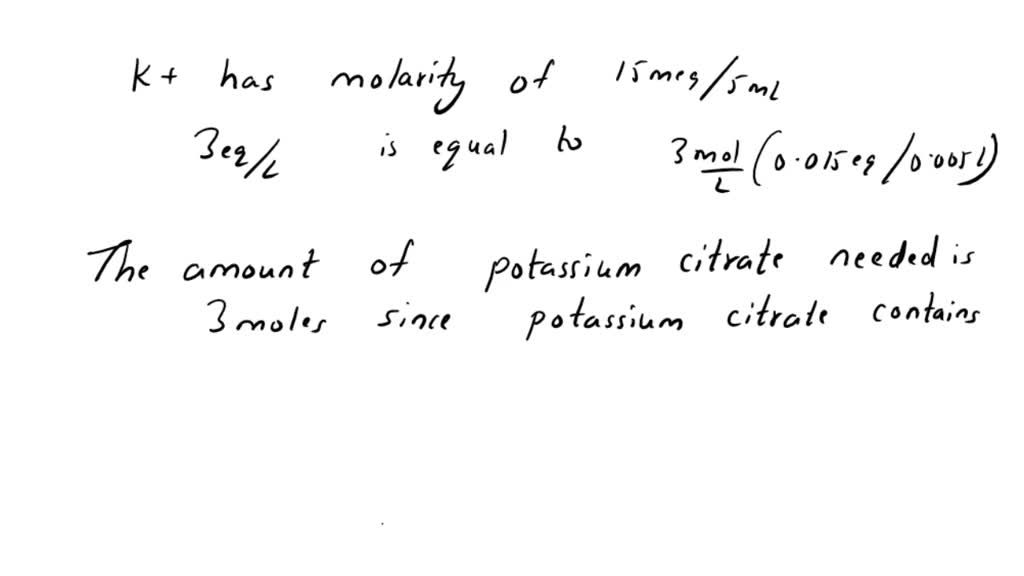 K+ has molarity of 15meq/5ml
3eq/L is equal to 3 mol/L (0.015eq/0.005l)
The amount of potassium citrate needed is
3moles since potassium citrate contains